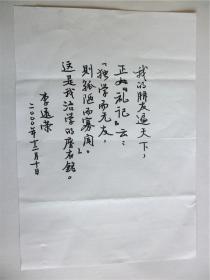 我的朋友遍天下，
正如《礼记》云：
“独学而无友，
则孤陋而寡闻”。
这是我治学的座右铭。
李远荣
二000年十二月十日